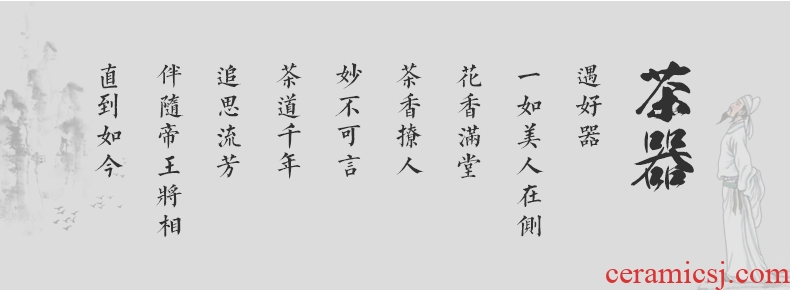 茶器
遇好器
一如美人在側
花香滿堂
茶香撩人
妙不可言
茶道千年
追思流芳
伴隨帝王將相
直到如今
ceramicsj.com